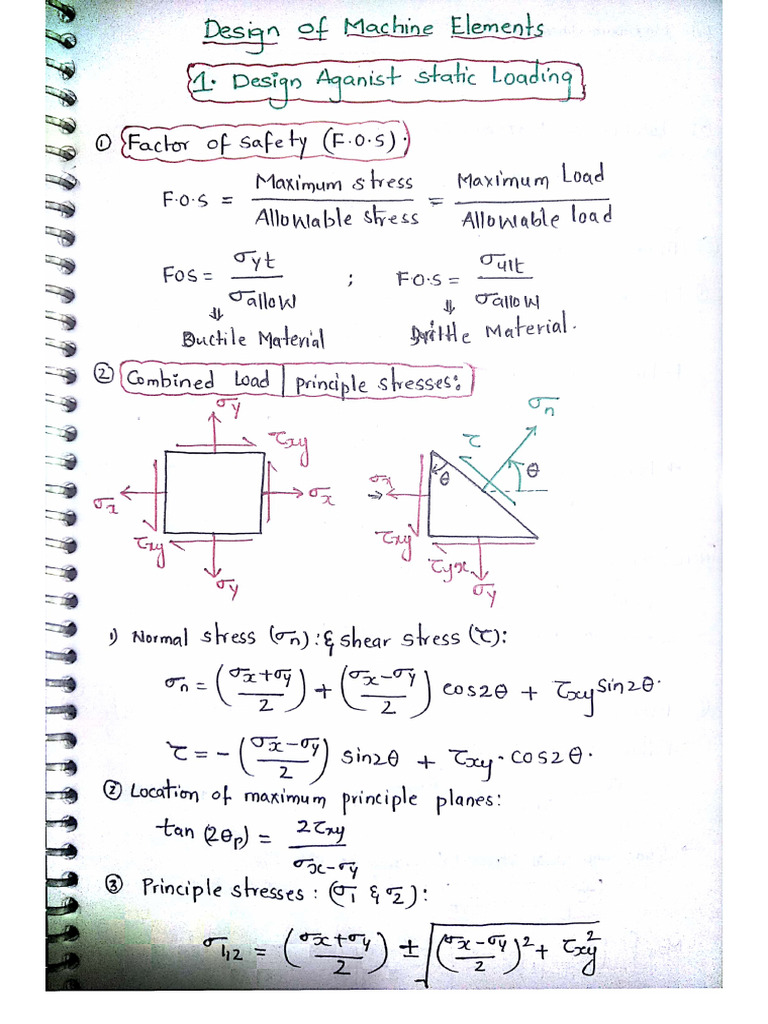 Design of Machine Elements
1. Design Aganist Static Loading
① Factor of safety (F.O.S).
F.O.S = Maximum stress / Allowable stress = Maximum Load / Allowable load
FOS = σyt / σallow ; F.O.S = σult / σallow
⇓ ⇓
Ductile Material Brittle Material.
② Combined Load | principle stresses:
σy σn
τxy τ
θ θ
σx σx σx
τxy τxy
τyx
σy σy
1) Normal stress (σn): & shear stress (τ):
σn = ((σx+σy)/2) + ((σx-σy)/2) cos2θ + τxy sin2θ.
τ = -((σx-σy)/2) sin2θ + τxy. cos2θ.
② Location of maximum principle planes:
tan (2θp) = 2τxy / σx-σy
③ Principle stresses: (σ1 & σ2):
σ1,2 = ((σx+σy)/2) ± √(((σx-σy)/2)² + τxy²)